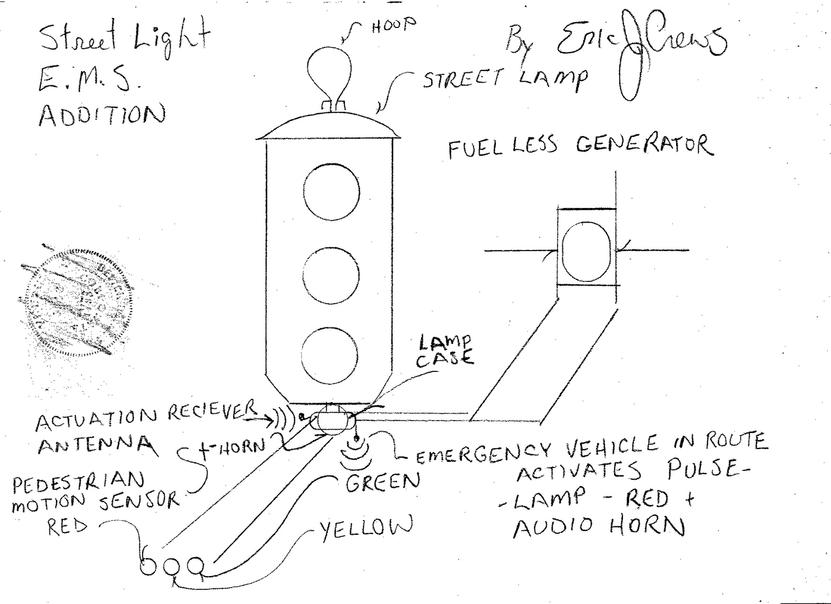 Street Light
E.M.S.
ADDITION
HOOP
By Eric J Crews
STREET LAMP
FUEL LESS GENERATOR
LAMP
CASE
ACTUATION RECIEVER
ANTENNA
+-HORN
PEDESTRIAN
MOTION SENSOR
RED
GREEN
YELLOW
EMERGENCY VEHICLE IN ROUTE
ACTIVATES PULSE-
-LAMP - RED +
AUDIO HORN